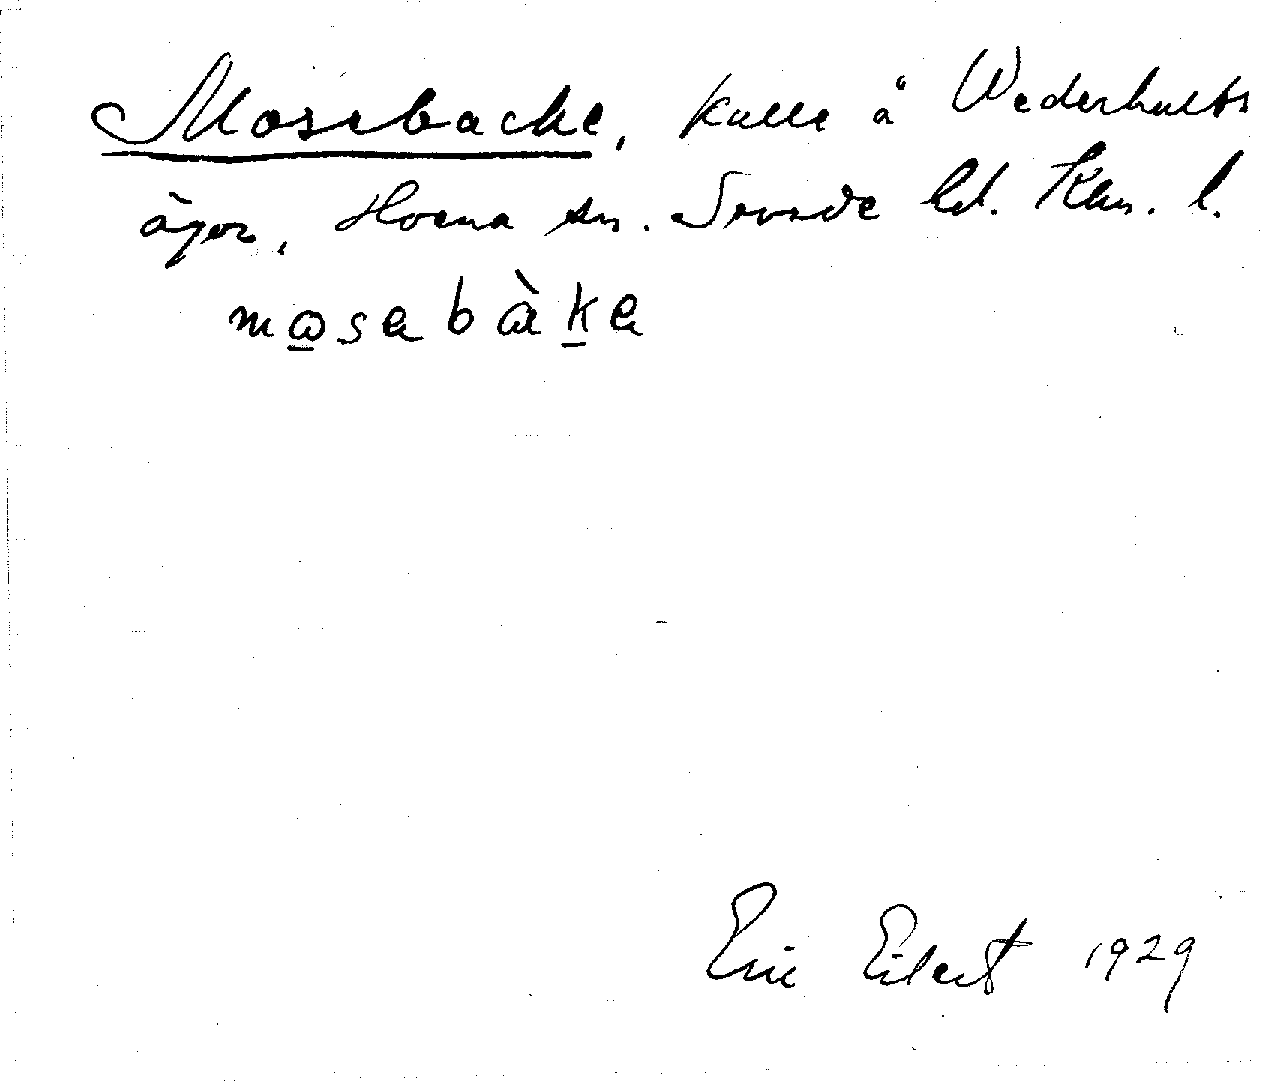 Mosebacke, kulle å Wederhults
ägor, Horna sn. Snrde hd. Klm. l.
mosebàke
Eric Eilert 1929